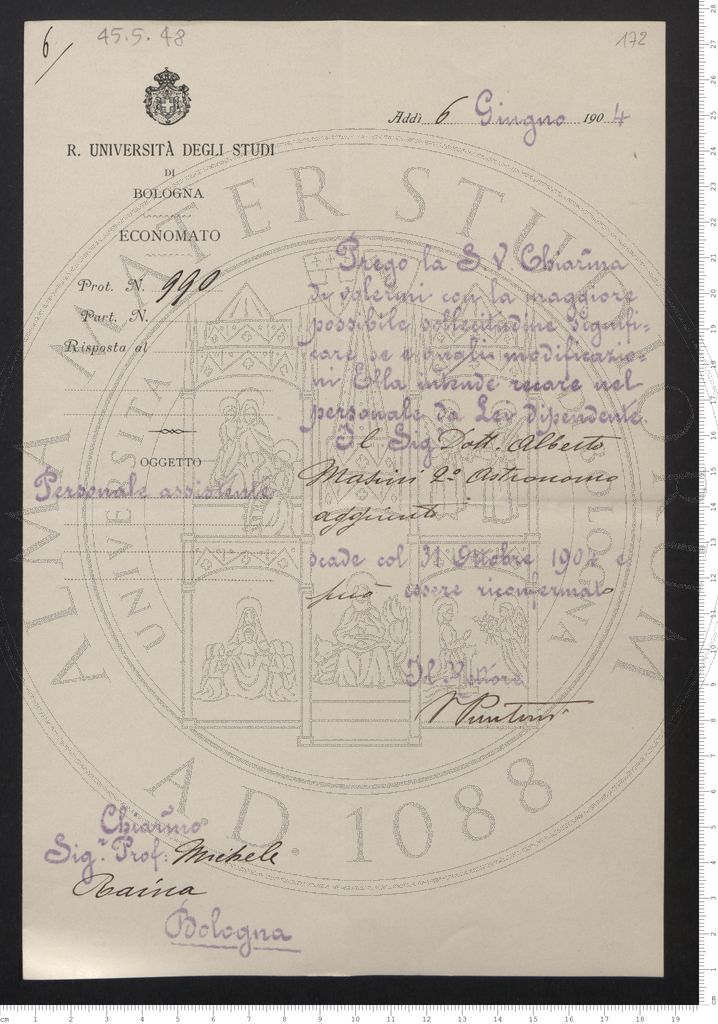 6/
45.5.48
172
Addì 6 Giugno 1904
R. UNIVERSITÀ DEGLI STUDI
DI
BOLOGNA
ECONOMATO
Prot. N. 990
Part. N.
Risposta al
OGGETTO
Personale assistente
Prego la S. V. Chiar.ma
di volermi con la maggiore
possibile sollecitudine signifi-
care se e quali modificazio-
ni Ella intende recare nel
personale da Lei dipendente.
Il Sig. Dott. Alberto
Masini 2º Astronomo
aggiunto
scade col 31 Ottobre 1904 e
può essere riconfermato
Il Rettore
V Puntoni
Chiar.mo
Sig.r Prof. Michele
Rajna
Bologna
ALMA MATER STUDIORUM
UNIVERSITÀ DI BOLOGNA
A.D. 1088